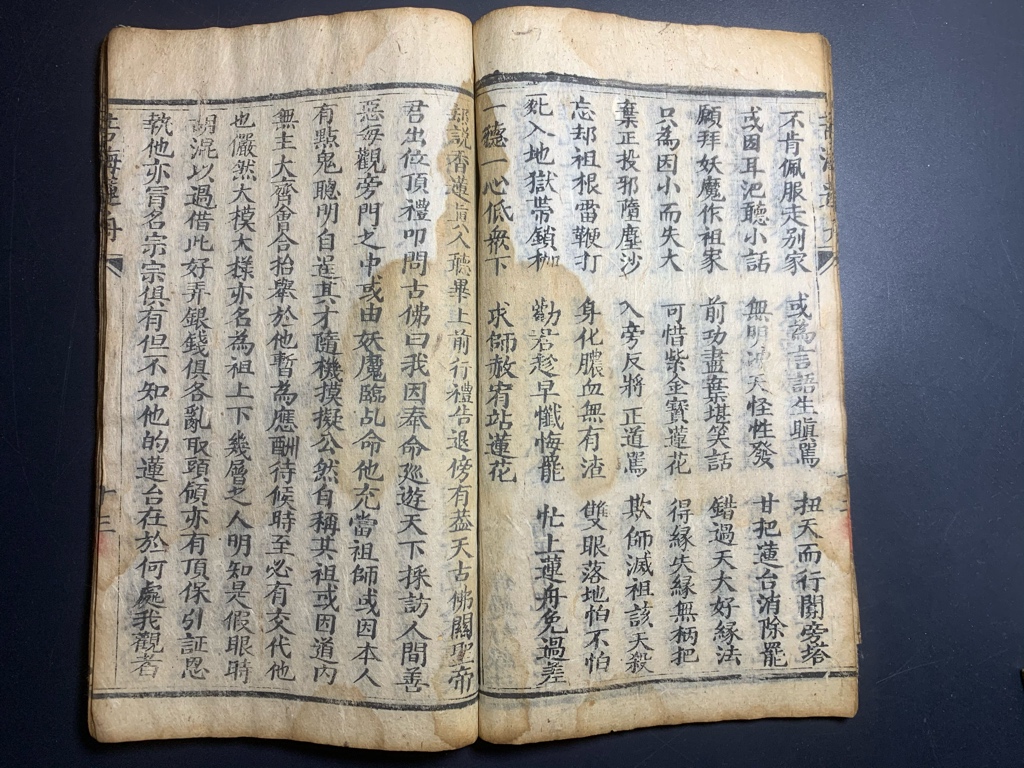 不肯佩服走別家 或為言語生瞋罵 扭天而行闢旁塔
或因耳氾聽小話 無明冲天怪性發 甘把蓮台消除罷
願拜妖魔作祖家 前功盡棄堪笑話 錯過天大好緣法
只為因小而失大 可惜紫金寶蓮花 得緣失緣無柄把
棄正投邪墮塵沙 入旁反將正道罵 欺師滅祖該天殺
忘却祖根雷鞭打 身化膿血無有渣 雙眼落地怕不怕
死入地獄帶鎖枷 勸君趁早懺悔罷 忙上蓮舟免過差
一聽一心低眾下 求師赦宥站蓮花
却說香蓮 人聽畢上前行禮告退傍有蓋天古佛關聖帝
君出位頂禮叩問古佛曰我因奉命巡遊天下採訪人間善
惡每觀旁門之中或由妖魔臨乩命他充當祖師或因本人
有點鬼聰明自逞其才隨機摸擬公然自稱其祖或因道內
無主大齊會合抬舉於他暫為應酬待候時至必有交代他
也儼然大模大樣亦名為祖上下幾層之人明知是假眼時
胡混以過借此好弄銀錢俱各亂取頭領亦有頂保引証恩
執他亦冒名宗宗俱有但不知他的蓮台在於何處我觀者
苦海蓮舟
十三